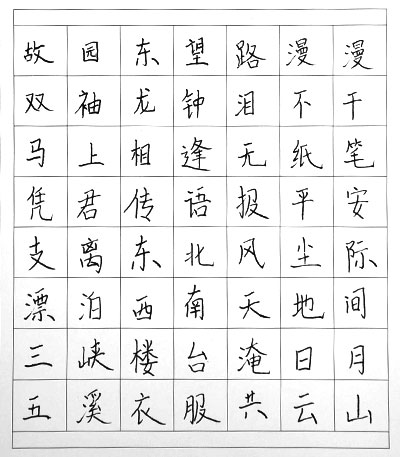 故园东望路漫漫
双袖龙钟泪不干
马上相逢无纸笔
凭君传语报平安
支离东北风尘际
漂泊西南天地间
三峡楼台淹日月
五溪衣服共云山